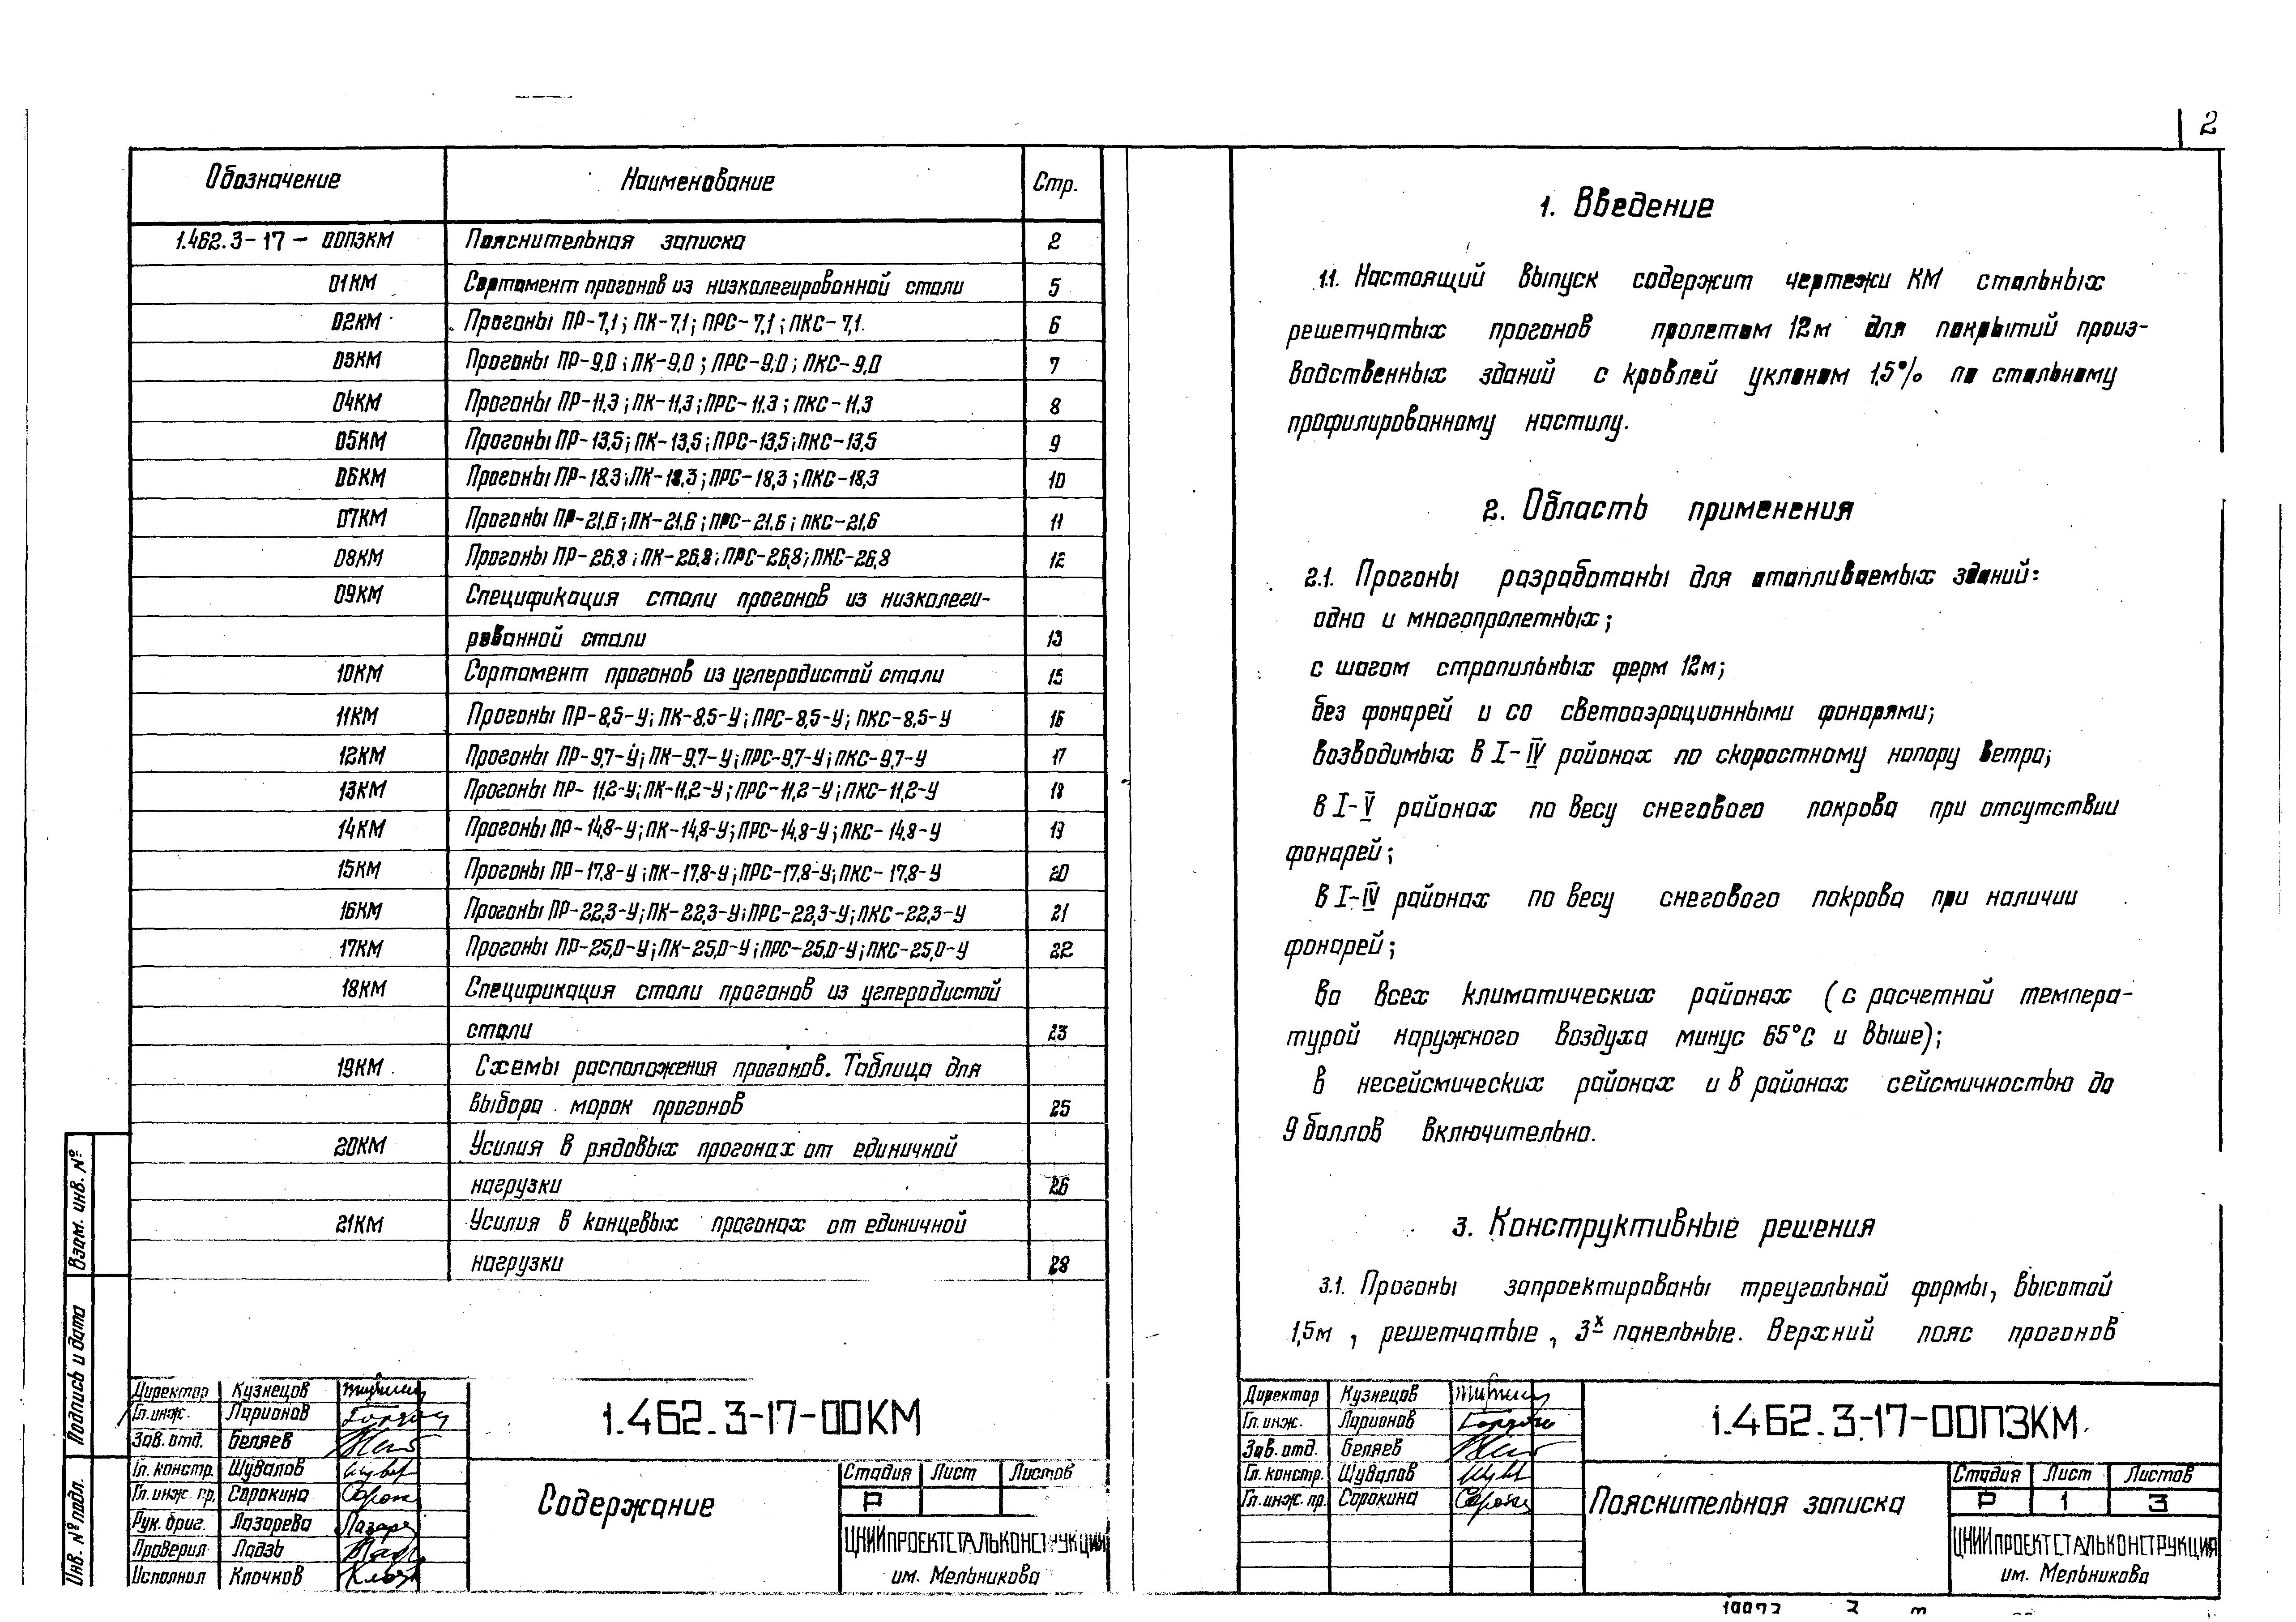 2
Обозначение Наименование Стр.
1.462.3-17-00ПЗКМ Пояснительная записка 2
01КМ Сортамент прогонов из низколегированной стали 5
02КМ Прогоны ПР-7,1; ПК-7,1; ПРС-7,1; ПКС-7,1. 6
03КМ Прогоны ПР-9,0; ПК-9,0; ПРС-9,0; ПКС-9,0 7
04КМ Прогоны ПР-11,3; ПК-11,3; ПРС-11,3; ПКС-11,3 8
05КМ Прогоны ПР-13,5; ПК-13,5; ПРС-13,5; ПКС-13,5 9
06КМ Прогоны ПР-18,3; ПК-18,3; ПРС-18,3; ПКС-18,3 10
07КМ Прогоны ПР-21,6; ПК-21,6; ПРС-21,6; ПКС-21,6 11
08КМ Прогоны ПР-26,8; ПК-26,8; ПРС-26,8; ПКС-26,8 12
09КМ Спецификация стали прогонов из низколеги-
рованной стали 13
10КМ Сортамент прогонов из углеродистой стали 15
11КМ Прогоны ПР-8,5-У; ПК-8,5-У; ПРС-8,5-У; ПКС-8,5-У 16
12КМ Прогоны ПР-9,7-У; ПК-9,7-У; ПРС-9,7-У; ПКС-9,7-У 17
13КМ Прогоны ПР-11,2-У; ПК-11,2-У; ПРС-11,2-У; ПКС-11,2-У 18
14КМ Прогоны ПР-14,8-У; ПК-14,8-У; ПРС-14,8-У; ПКС-14,8-У 19
15КМ Прогоны ПР-17,8-У; ПК-17,8-У; ПРС-17,8-У; ПКС-17,8-У 20
16КМ Прогоны ПР-22,3-У; ПК-22,3-У; ПРС-22,3-У; ПКС-22,3-У 21
17КМ Прогоны ПР-25,0-У; ПК-25,0-У; ПРС-25,0-У; ПКС-25,0-У 22
18КМ Спецификация стали прогонов из углеродистой
стали 23
19КМ Схемы расположения прогонов. Таблица для
выбора марок прогонов 25
20КМ Усилия в рядовых прогонах от единичной
нагрузки 26
21КМ Усилия в концевых прогонах от единичной
нагрузки 28
Взам. инв. №
Подпись и дата
Инв. № подл.
Директор Кузнецов
Гл. инж. Ларионов
Зав. отд. Беляев
Гл. констр. Шувалов
Гл. инж. пр. Сорокина
Рук. бриг. Лазарева
Проверил Ладзь
Исполнил Клочков
1.462.3-17-00КМ
Содержание
Стадия Лист Листов
Р
ЦНИИПРОЕКТСТАЛЬКОНСТРУКЦИЯ
им. Мельникова
1. Введение
1.1. Настоящий выпуск содержит чертежи КМ стальных
решетчатых прогонов пролетом 12м для покрытий произ-
водственных зданий с кровлей уклоном 1,5% по стальному
профилированному настилу.
2. Область применения
2.1. Прогоны разработаны для отапливаемых зданий:
одно и многопролетных;
с шагом стропильных ферм 12м;
без фонарей и со светоаэрационными фонарями;
возводимых в I-IV районах по скоростному напору ветра;
в I-V районах по весу снегового покрова при отсутствии
фонарей;
в I-IV районах по весу снегового покрова при наличии
фонарей;
во всех климатических районах (с расчетной темпера-
турой наружного воздуха минус 65°С и выше);
в несейсмических районах и в районах сейсмичностью до
9 баллов включительно.
3. Конструктивные решения
3.1. Прогоны запроектированы треугольной формы, высотой
1,5м, решетчатые, 3х панельные. Верхний пояс прогонов
Директор Кузнецов
Гл. инж. Ларионов
Зав. отд. Беляев
Гл. констр. Шувалов
Гл. инж. пр. Сорокина
1.462.3-17-00ПЗКМ
Пояснительная записка
Стадия Лист Листов
Р 1 3
ЦНИИПРОЕКТСТАЛЬКОНСТРУКЦИЯ
им. Мельникова